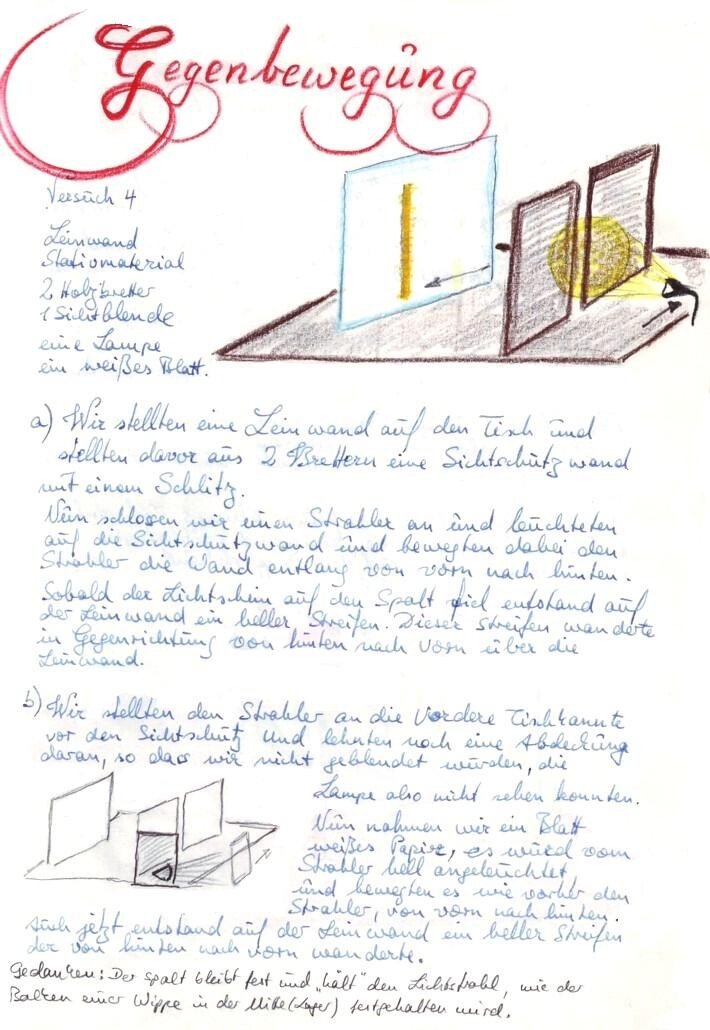 Gegenbewegung
Versuch 4
Leinwand
Stativmaterial
2 Holzbretter
1 Sichtblende
eine Lampe
ein weißes Blatt.
a) Wir stellten eine Leinwand auf den Tisch und
stellten davor aus 2 Brettern eine Sichtschutzwand
mit einem Schlitz.
Nun schlossen wir einen Strahler an und leuchteten
auf die Sichtschutzwand und bewegten dabei den
Strahler die Wand entlang von vorn nach hinten.
Sobald der Lichtschein auf den Spalt fiel entstand auf
der Leinwand ein heller Streifen. Dieser Streifen wanderte
in Gegenrichtung von hinten nach vorn über die
Leinwand.
b) Wir stellten den Strahler an die vordere Tischkannte
vor den Sichtschutz und lehnten noch eine Abdeckung
daran, so dass wir nicht geblendet wurden, die
Lampe also nicht sehen konnten.
Nun nahmen wir ein Blatt
weißes Papier, es wurd vom
Strahler hell angeleuchtet,
und bewegten es wie vorher den
Strahler, von vorn nach hinten.
Auch jetzt entstand auf der Leinwand ein heller Streifen
der von hinten nach vorn wanderte.
Gedanken: Der Spalt bleibt fest und „hält" den Lichtstrahl, wie der
Balken einer Wippe in der Mitte (Lager) festgehalten wird.